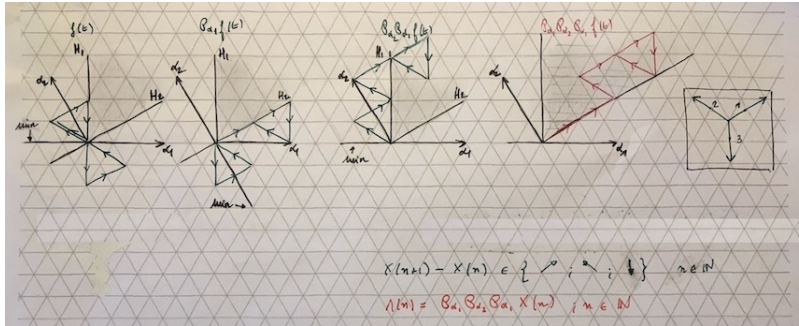 f(t)
H₁
α₂
H₂
min
α₁
P_α₁ f(t)
H₁
α₂
H₂
α₁
min →
P_α₂ P_α₁ f(t)
H₁
α₂
H₂
α₁
min
P_α₁ P_α₂ P_α₁ f(t)
α₂
α₁
2 1
3
X(n+1) - X(n) ∈ { ↗ ; ↖ ; ↓ } n ∈ ℕ
Λ(n) = P_α₁ P_α₂ P_α₁ X(n) ; n ∈ ℕ